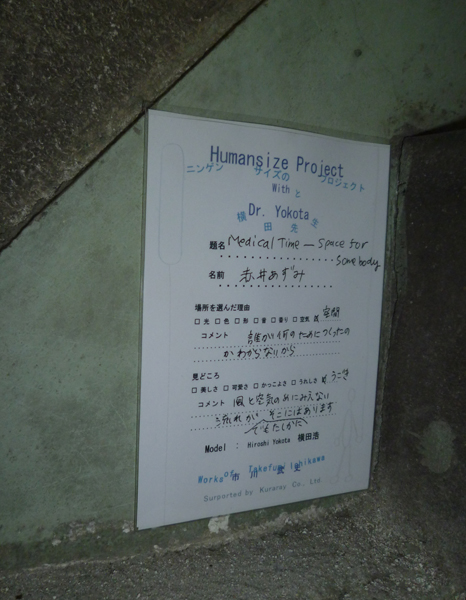 Humansize Project
ニンゲン サイズの プロジェクト
With と
Dr. Yokota
横田先生
題名 Medical Time — Space for
Somebody
名前 赤井あずみ
場所を選んだ理由
□光 □色 □形 □音 □香り □空気 ☑空間
コメント 誰が何のためにつくったの
かわからないから
見どころ
□美しさ □可愛さ □かっこよさ □うれしさ ☑うごき
コメント 風と空気のめにみえない
流れが そこにはあります
でもたしかに
Model : Hiroshi Yokota 横田浩
Works of Takefumi Ichikawa
市川武史
Surported by Kuraray Co., Ltd